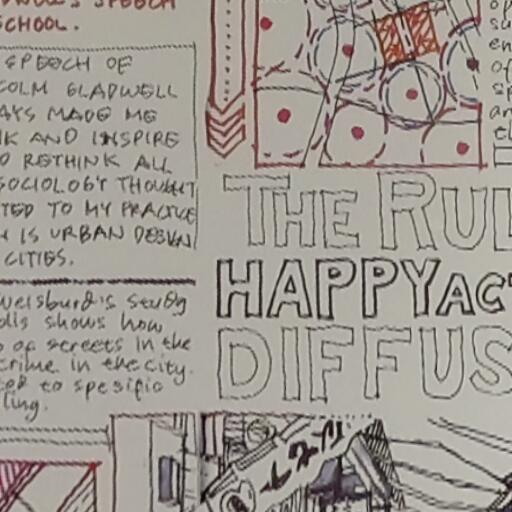 SPEECH
SCHOOL.
SPEECH OF
COLM GLADWELL
AYS MADE ME
K AND INSPIRE
O RETHINK ALL
SOCIOLOGY THOUGHT
TED TO MY PRACTICE
H IS URBAN DESIGN
CITIES.
weisburd's study
dlis shows how
s of streets in the
crime in the city.
ted to spesific
ling.
THE RUL
HAPPY ACT
DIFFUS
op
su
en
of
sp
an
th